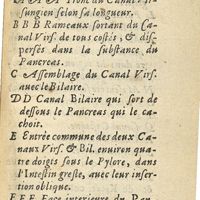 A A A Tronc du Canal Vir-
sungien selon sa longueur.
B B B Rameaux sortant du Ca-
nal Virs. de tous costés, & dis-
persés dans la substance du
Pancreas.
C Assemblage du Canal Virs.
avec le Bilaire.
D D Canal Bilaire qui sort de
dessous le Pancreas qui le ca-
choit.
E Entrée commune des deux Ca-
naux Virs. & Bil. environ quatre
doigts sous le Pylore, dans
l'Intestin gresle, avec leur inser-
tion oblique.
F F F Face interieure du Pan-